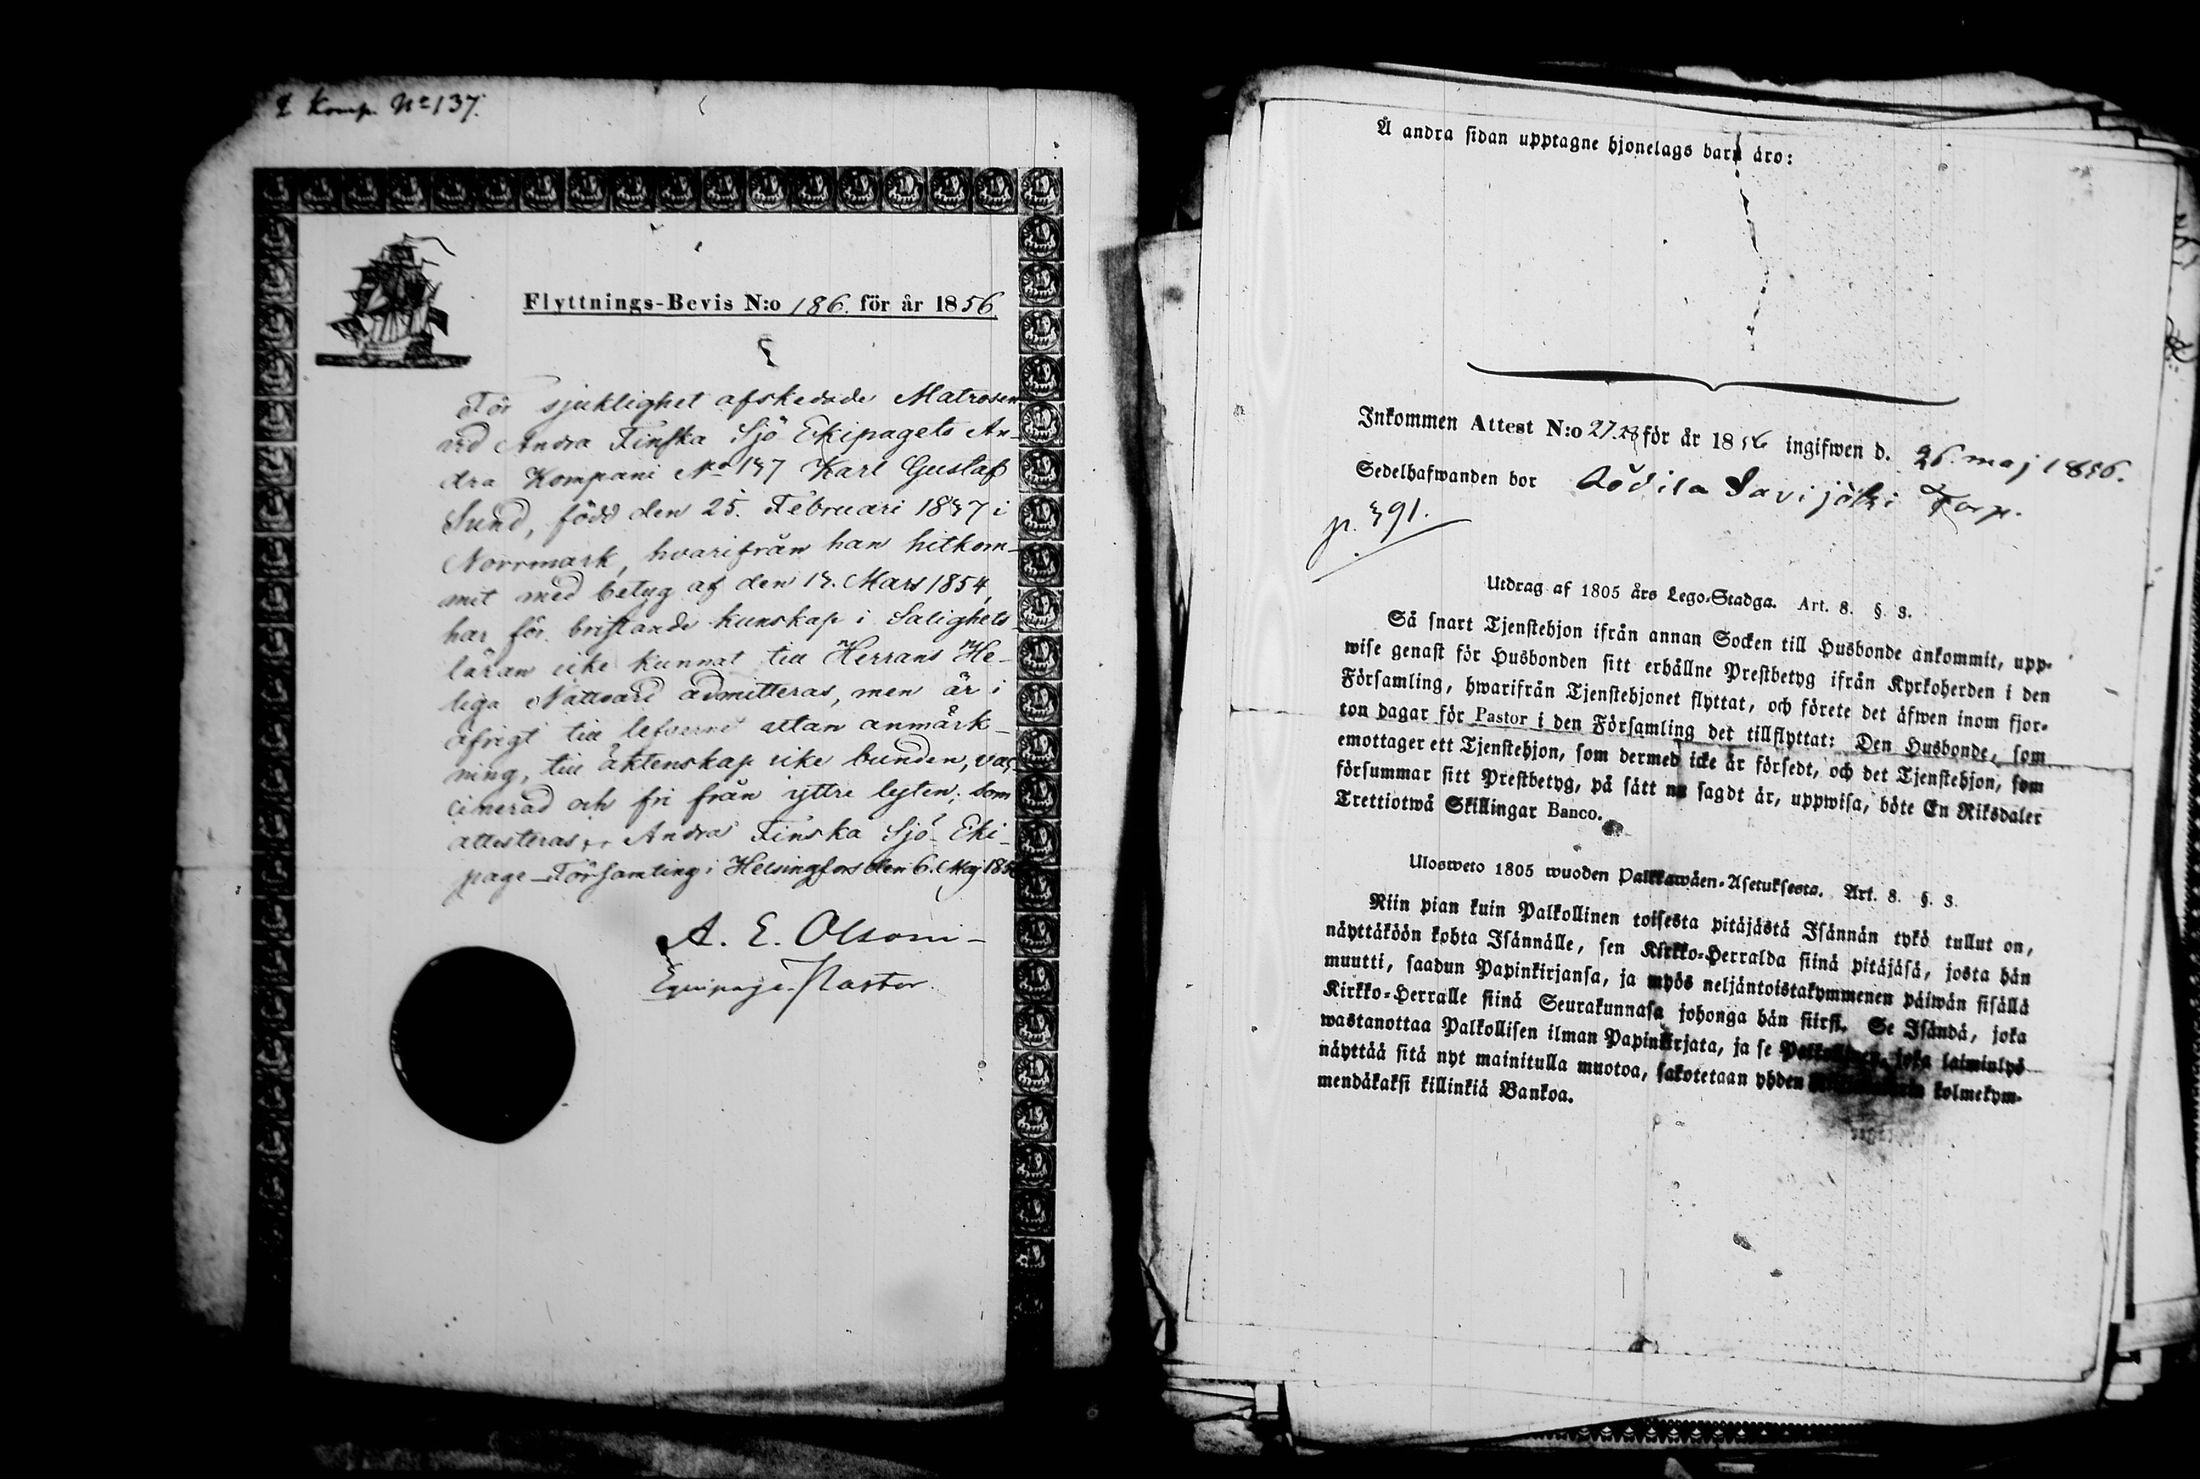 2 Komp. No 137.
Flyttnings-Bevis N:o 186. för år 1856.
För sjuklighet afskedade Matrosen
vid Andra Finska Sjö Ekipagets An-
dra Kompani No 137 Karl Gustaf
Sund, född den 25. Februari 1837 i
Norrmark, hvarifrån han hitkom-
mit med betyg af den 13. Mars 1854,
har för bristande kunskap i Salighets-
läran icke kunnat till Herrans He-
liga Nattvard admitteras, men är i
öfrigt till lefverne utan anmärk-
ning, till äktenskap icke bunden, vac-
cinerad och fri från yttre lyten; som
attesteras. Andra Finska Sjö-Eki-
page-Församling i Helsingfors den 6. Maj 1856
A. E. Olsoni
Equipage-Pastor.
Å andra sidan upptagne hjonelags barn äro:
Inkommen Attest N:o 27.28 för år 1856 ingifwen d. 26. maj 1856.
Sedelhafwanden bor Savijoki Torp.
p. 391.
Utdrag af 1805 års Lego-Stadga. Art. 8. §. 3.
Så snart Tjenstehjon ifrån annan Socken till Husbonde ankommit, upp-
wise genast för Husbonden sitt erhållne Prestbetyg ifrån Kyrkoherden i den
Församling, hwarifrån Tjenstehjonet flyttat, och förete det äfwen inom fjor-
ton dagar för Pastor i den Församling det tillflyttat: Den Husbonde, som
emottager ett Tjenstehjon, som dermed icke är försedt, och det Tjenstehjon, som
försummar sitt Prestbetyg, på sätt nu sagdt är, uppwisa, böte En Riksdaler
Trettiotwå Skillingar Banco.
Ulosweto 1805 wuoden Palkkawäen-Asetuksesta. Art. 8. §. 3.
Niin pian kuin Palkollinen toisesta pitäjästä Isännän tykö tullut on,
näyttäköön kohta Isännälle, sen Kirkko-Herralda siinä pitäjäsä, josta hän
muutti, saadun Papinkirjansa, ja myös neljäntoistakymmenen päiwän sisällä
Kirkko-Herralle siinä Seurakunnasa johonga hän siirsi. Se Isändä, joka
wastanottaa Palkollisen ilman Papinkirjata, ja se Palkollinen, joka laiminlyö
näyttää sitä nyt mainitulla muotoa, sakotetaan yhden kolmekym-
mendäkaksi killinkiä Bankoa.